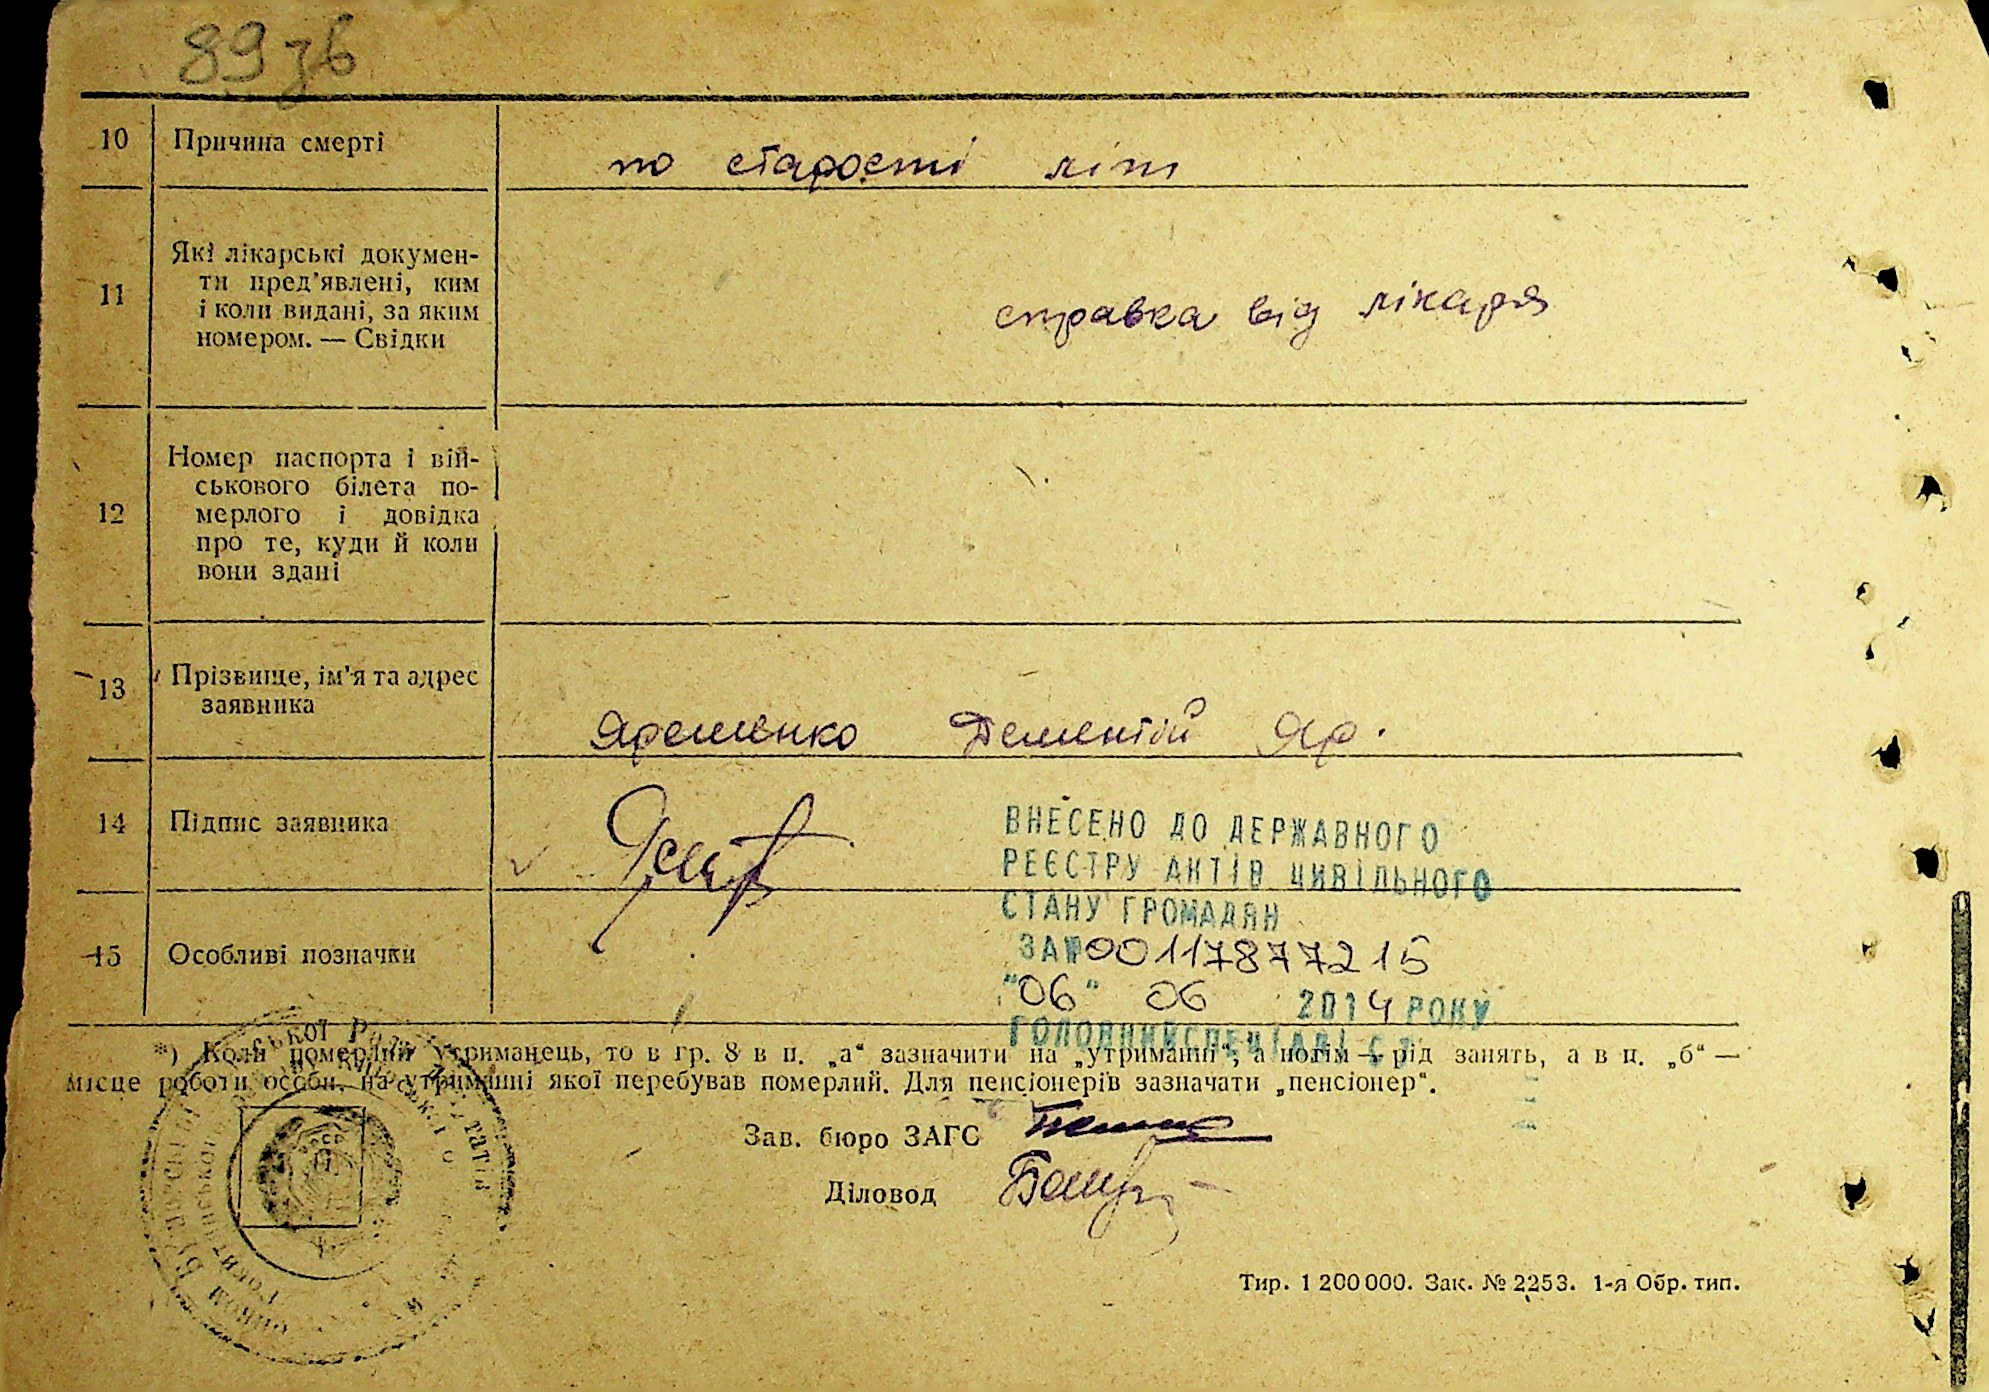 89 зв
10 Причина смерті по старості літ
11 Які лікарські докумен-
ти пред'явлені, ким
і коли видані, за яким
номером. — Свідки
справка від лікаря
12 Номер паспорта і вій-
ськового білета по-
мерлого і довідка
про те, куди й коли
вони здані
13 Прізвище, ім'я та адрес
заявника
Яременко Дементій Яр.
14 Підпис заявника
15 Особливі позначки
ВНЕСЕНО ДО ДЕРЖАВНОГО
РЕЄСТРУ АКТІВ ЦИВІЛЬНОГО
СТАНУ ГРОМАДЯН
ЗА № 00117877215
"06" 06 2014 РОКУ
ГОЛОВНИЙ СПЕЦІАЛІСТ
*) Коли померлий утриманець, то в гр. 8 в п. „а“ зазначити на „утриманні“, а потім — рід занять, а в п. „б“ —
місце роботи особи, на утриманні якої перебував померлий. Для пенсіонерів зазначати „пенсіонер“.
Зав. бюро ЗАГС
Діловод
Тир. 1 200 000. Зак. № 2253. 1-я Обр. тип.